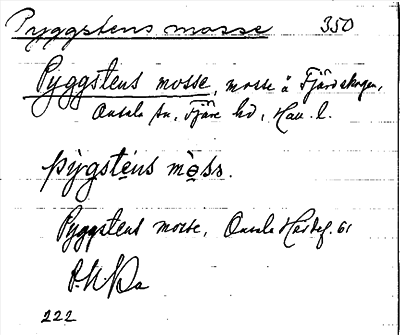 Pyggstens mosse 350
Pyggstens mosse, mosse å Fjärdskogen,
Onsala sn, Fjäre hd, Hall. l.
pỳgsténs mòss.
Pyggstens mosse, Onsala
222